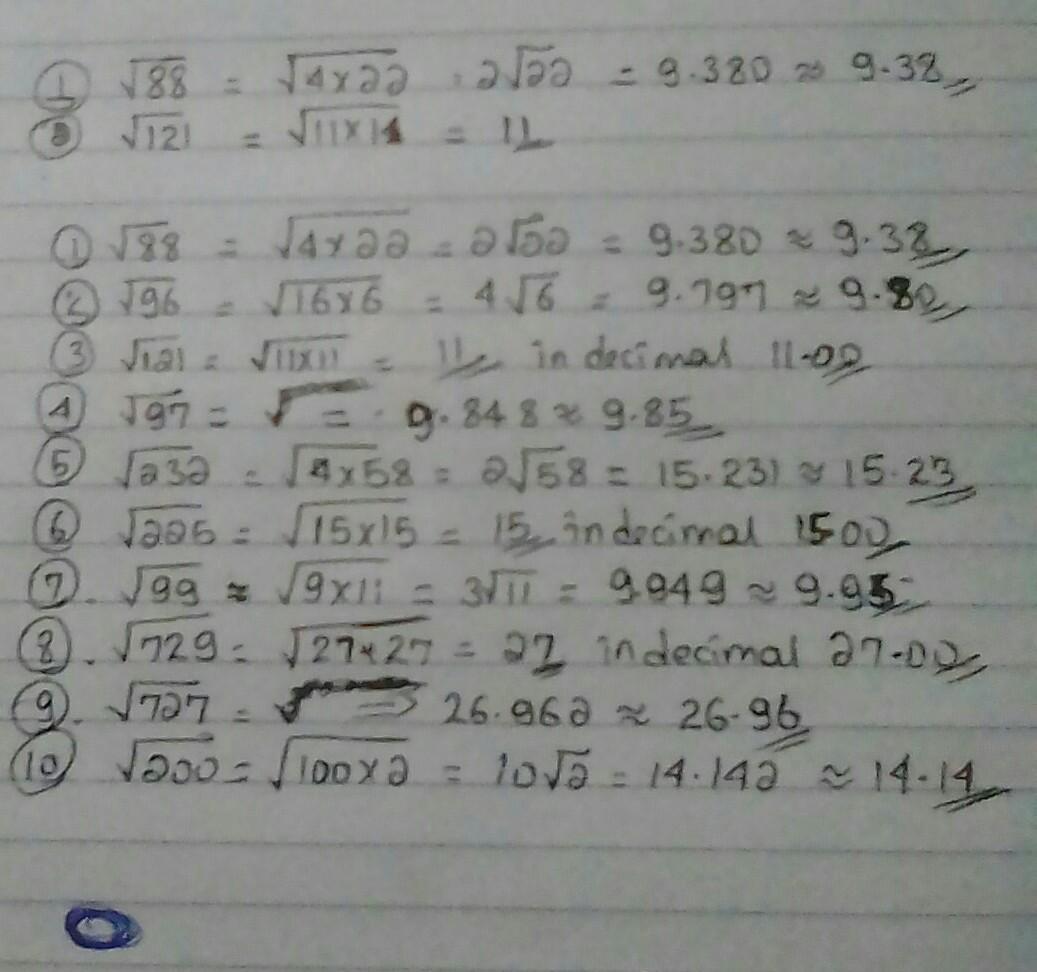 ① √88 = √4×22 . 2√22 = 9.380 ≈ 9.38
③ √121 = √11×11 = 11
① √88 = √4×22 = 2√22 = 9.380 ≈ 9.38
② √96 = √16×6 = 4√6 = 9.797 ≈ 9.80
③ √121 = √11×11 = 11 in decimal 11.00
④ √97 = √ = 9.848 ≈ 9.85
⑤ √232 = √4×58 = 2√58 = 15.231 ≈ 15.23
⑥ √225 = √15×15 = 15 in decimal 15.00
⑦. √99 ≈ √9×11 = 3√11 = 9.949 ≈ 9.95
⑧. √729 = √27×27 = 27 in decimal 27.00
⑨. √727 = √ = 26.962 ≈ 26.96
⑩ √200 = √100×2 = 10√2 = 14.142 ≈ 14.14